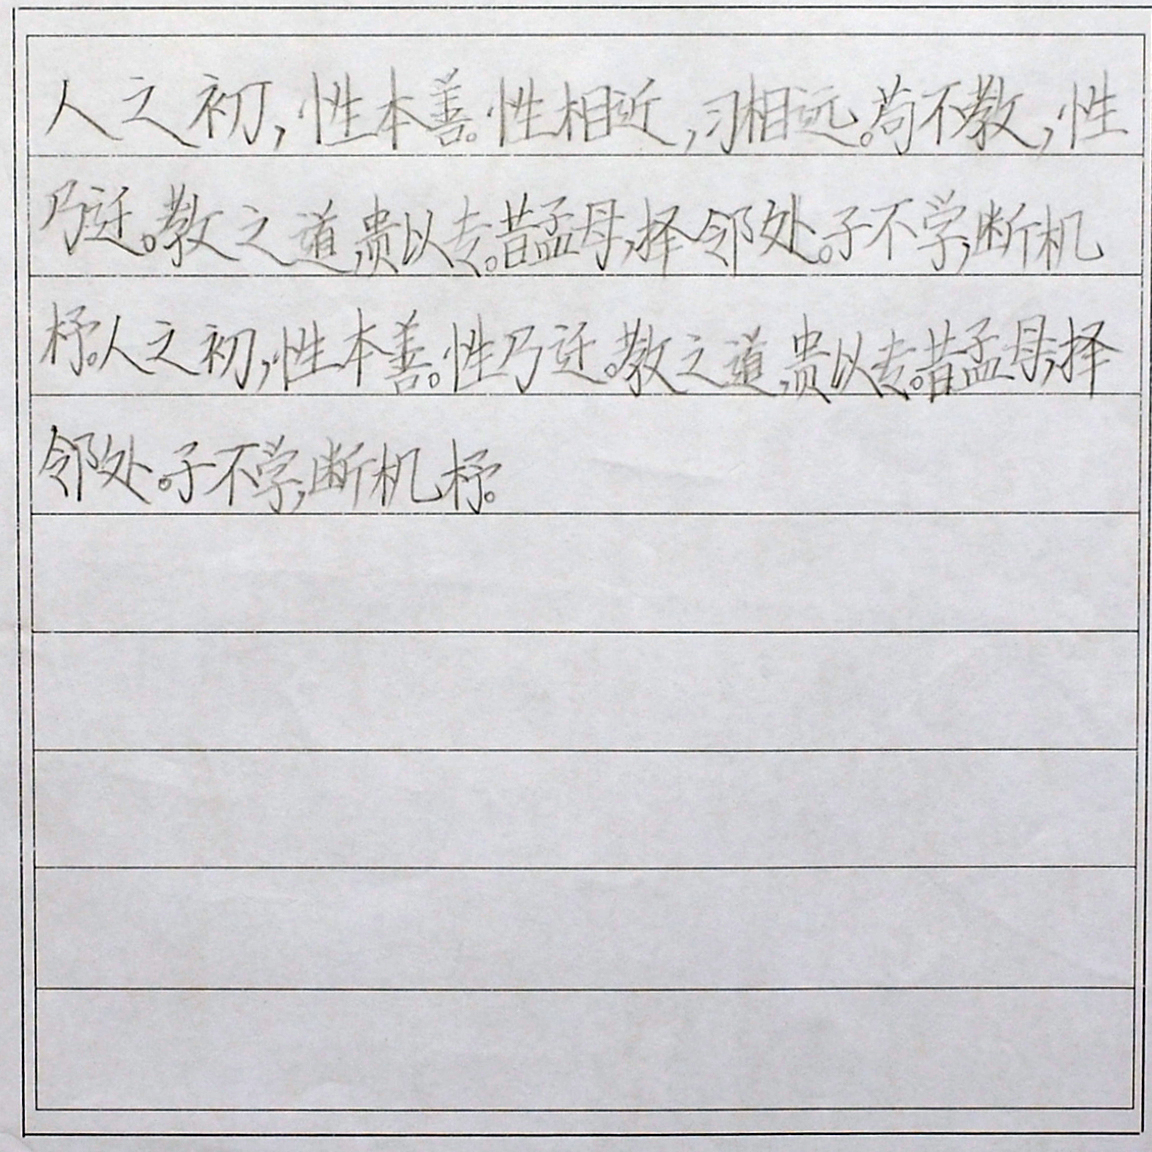 人之初,性本善。性相近,习相远。苟不教,性
乃迁。教之道,贵以专。昔孟母,择邻处。子不学,断机
杼。人之初,性本善。性乃迁。教之道,贵以专。昔孟母,择
邻处。子不学,断机杼。